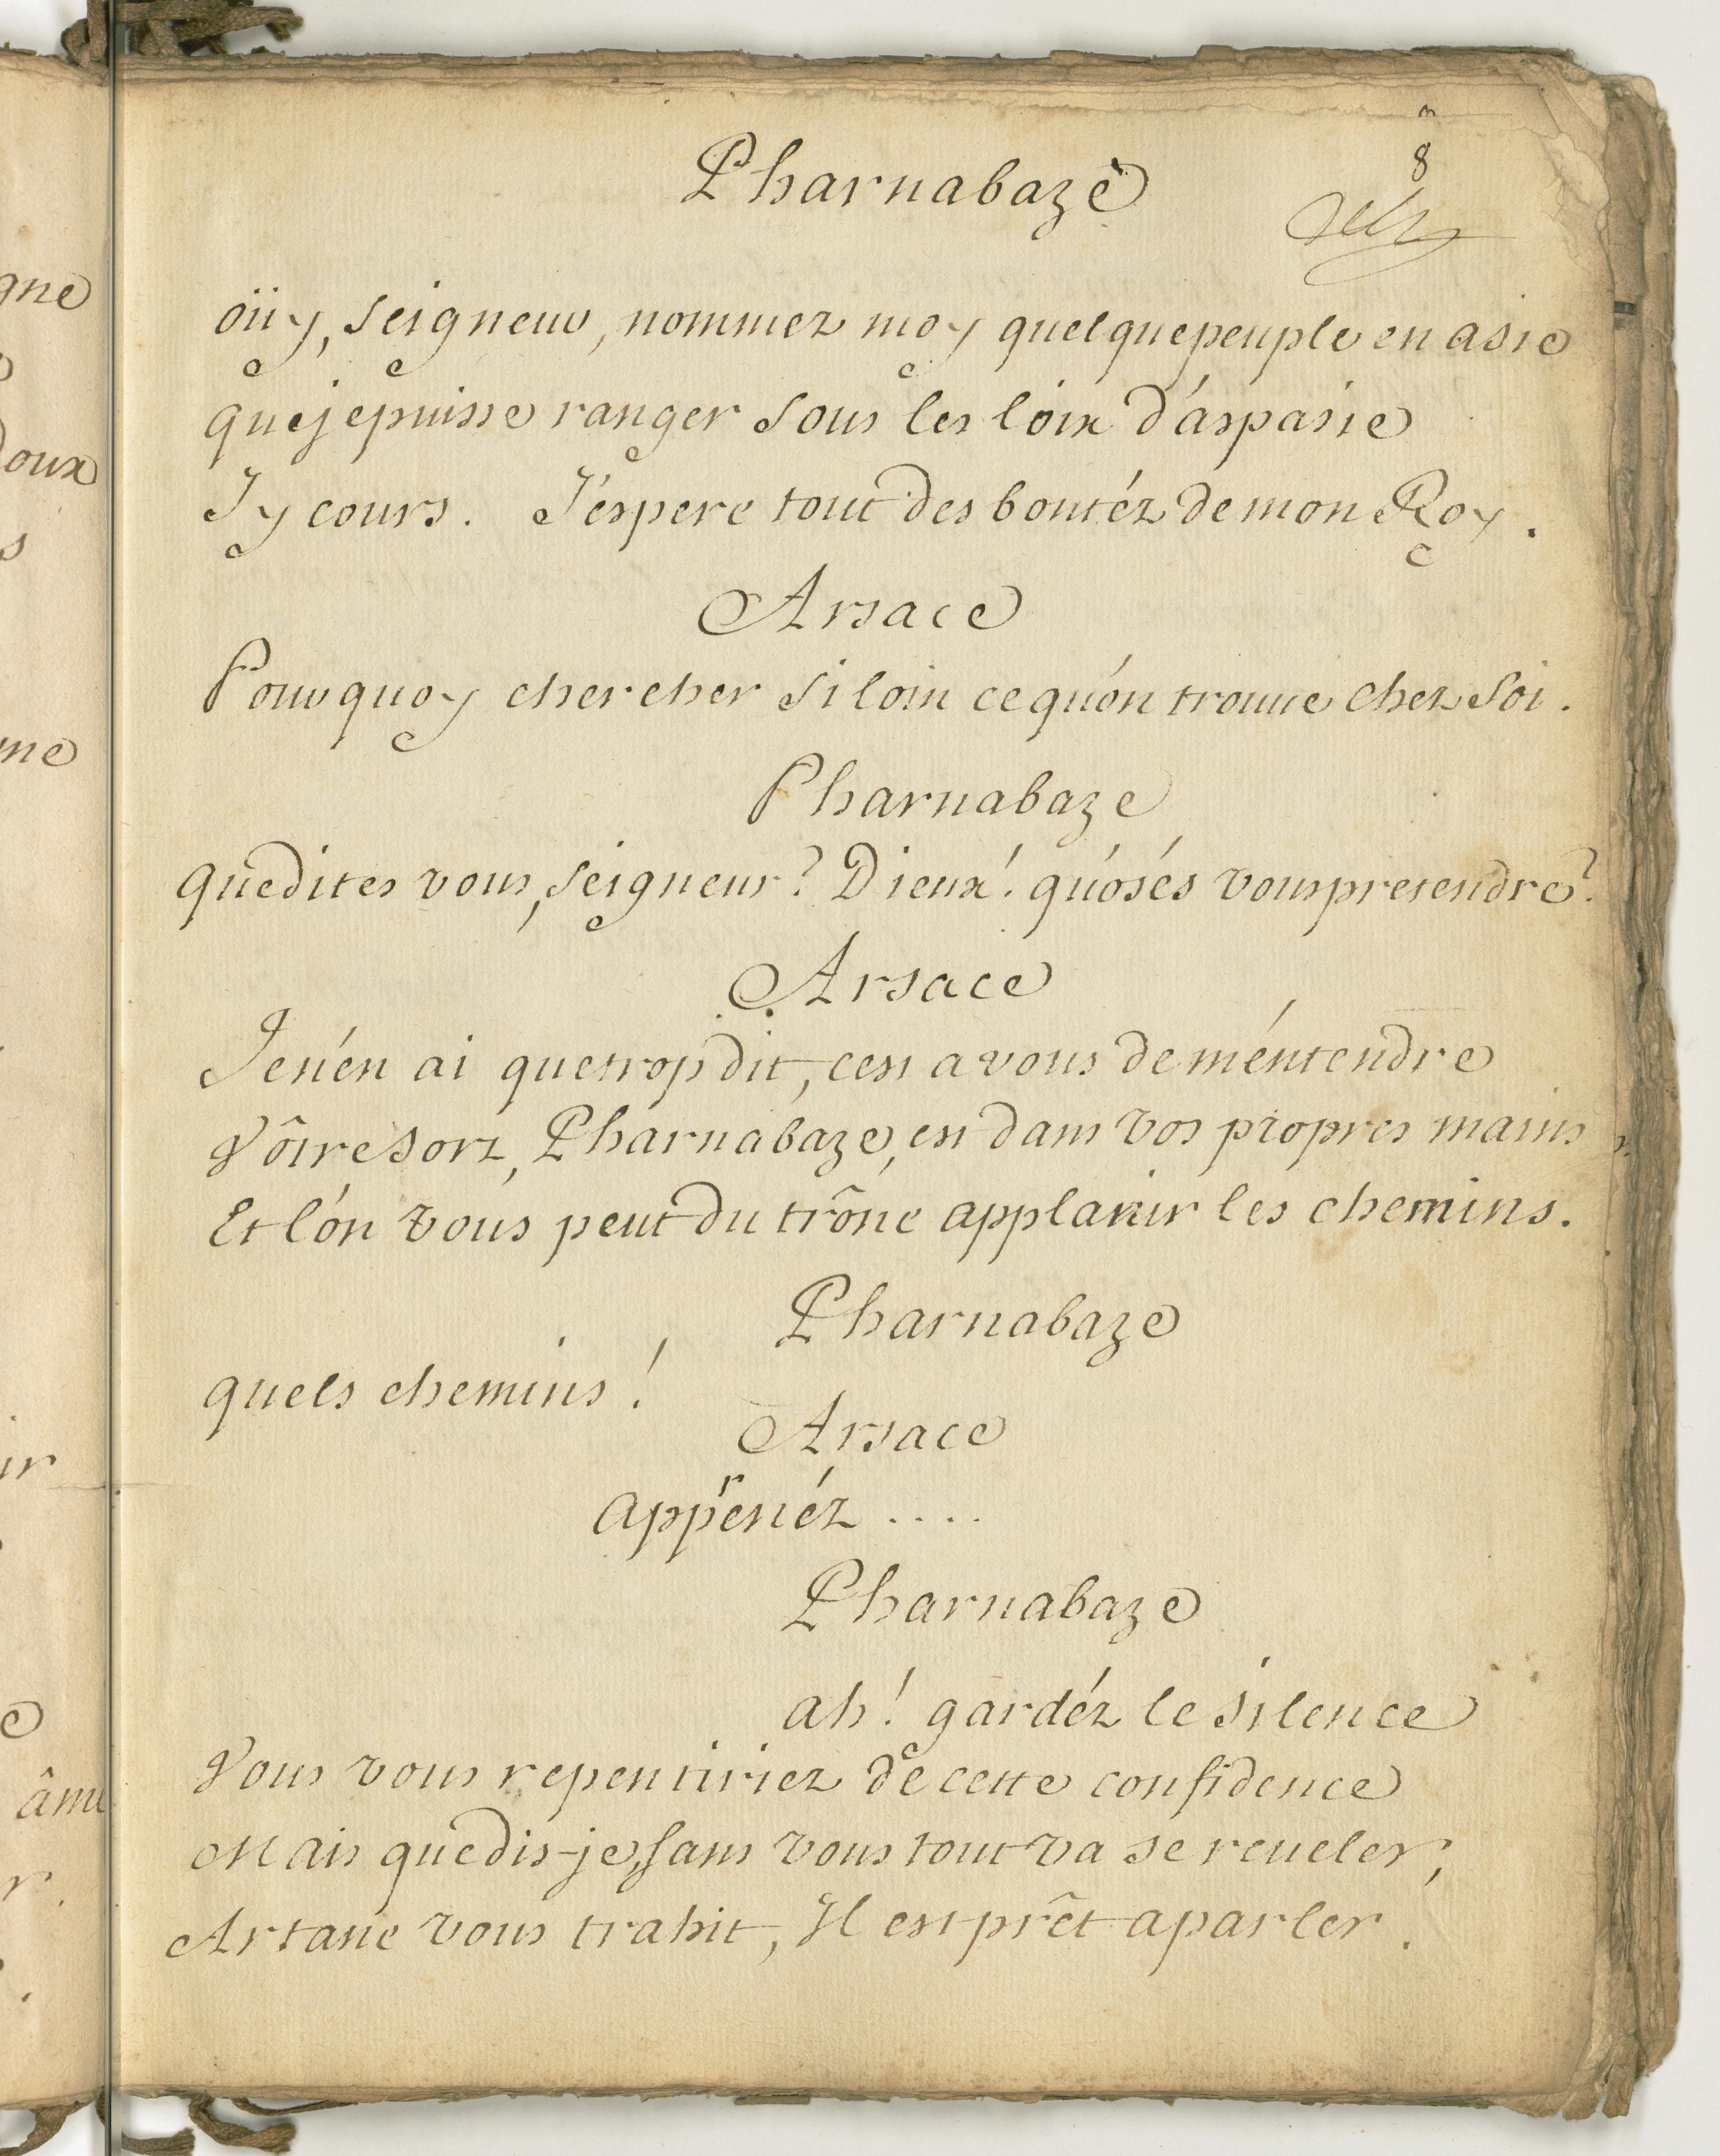 8
Pharnabaze
oüy, seigneur, nommez moy quelque peuple en asie
que je puisse ranger sous les loix d'aspasie
Jy cours. J'espere tout des bontéz de mon Roy.
Arsace
Pourquoy chercher si loin ce qu'on trouue chez soi.
Pharnabaze
que dites vous, seigneur? Dieux! qu'osés vous pretendre?
Arsace
Je n'en ai que trop dit, cest a vous de m'entendre
Vôtre sort, Pharnabaze, est dans vos propres mains
Et l'on vous peut du trône applanir les chemins.
Pharnabaze
quels chemins!
Arsace
apprenéz ....
Pharnabaze
ah! gardéz le silence
Vous vous repentiriez de cette confidence
Mais que dis-je, sans vous tout va se reueler,
Artane vous trahit, Il est prêt a parler.
gne
oux
s
me
ir
e
âme
r.